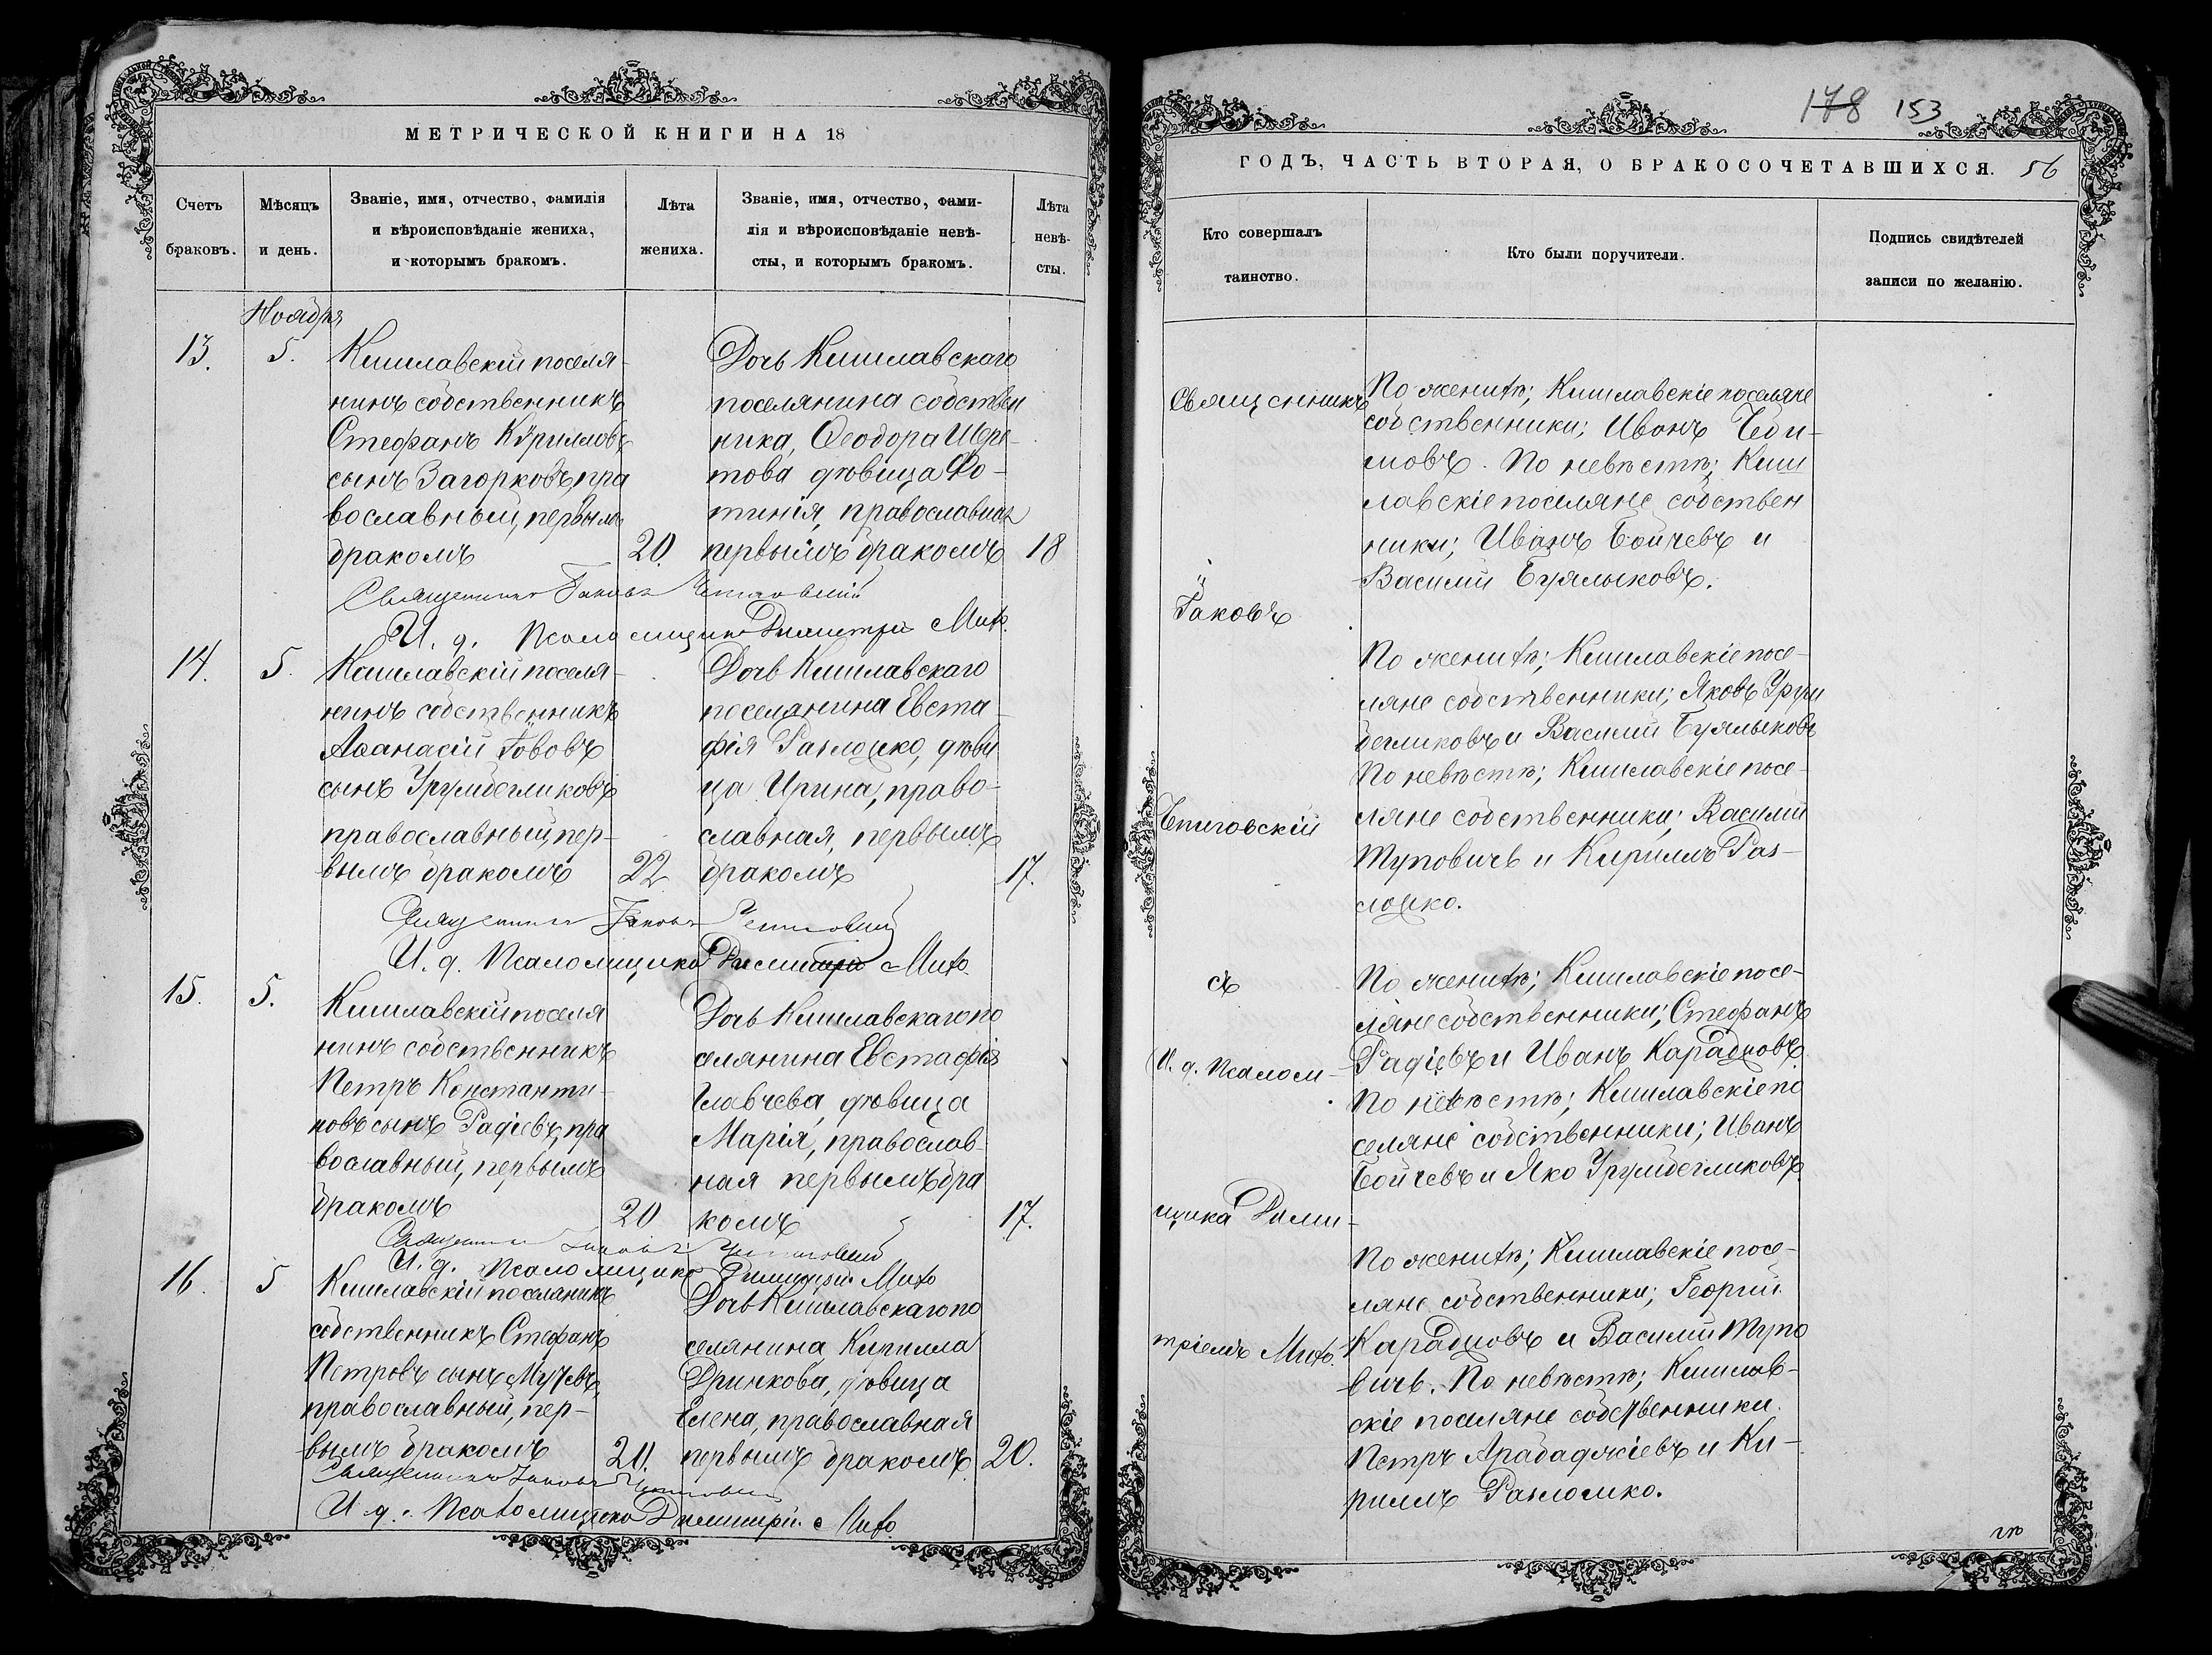 МЕТРИЧЕСКОЙ КНИГИ НА 18
Счетъ браковъ.
Мѣсяцъ и день.
Званіе, имя, отчество, фамилія
и вѣроисповѣданіе жениха,
и которымъ бракомъ.
Лѣта жениха.
Званіе, имя, отчество, фами-
лія и вѣроисповѣданіе невѣ-
сты, и которымъ бракомъ.
Лѣта невѣ-
сты.
Ноября
13. 5.
Кишлавскій поселя-
нинъ собственникъ
Стефанъ Кѵрилловъ
сынъ Загорковъ, пра
вославный, первымъ
бракомъ 20.
Дочь Кишлавскаго
поселянина собствен
ника, Ѳеодора Шере-
това дѣвица Фо-
тинія, православная
первымъ бракомъ 18
Священникъ Іаковъ
И. д. Псаломщика Димитрій Мито.
14. 5.
Кишлавскій поселя-
нинъ собственникъ
Аѳанасій Іововъ
сынъ Урумбегликовъ
православный, пер-
вымъ бракомъ 22.
Дочь Кишлавскаго
поселянина Евста
фія, дѣви
ца Ирина, право-
славная, первымъ
бракомъ 17.
Священникъ Іаковъ
И. д. Псаломщика Димитрій Мито.
15. 5.
Кишлавскій поселя
нинъ собственникъ
Петръ Константи-
новъ сынъ Радіевъ, пра
вославный, первымъ
бракомъ 20
Дочь Кишлавскаго по
селянина Евстафія
Главчева, дѣвица
Марія, православ-
ная первымъ бра
комъ 17.
Священникъ Іаковъ
И. д. Псаломщика Димитрій Мито
16. 5
Кишлавскій поселянинъ
собственникъ Стефанъ
Петровъ сынъ
православный, пер-
вымъ бракомъ 20.
Дочь Кишлавскаго по
селянина Кирилла
Дринкова, дѣвица
Елена, православная
первымъ бракомъ 20.
Священникъ Іаковъ
И. д. Псаломщика Димитрій Мито.
178 153
ГОДЪ, ЧАСТЬ ВТОРАЯ, О БРАКОСОЧЕТАВШИХСЯ. 56
Кто совершалъ
таинство.
Кто были поручители.
Подпись свидѣтелей
записи по желанію.
Священникъ
Іаковъ
съ
И. д. Псалом-
щика Дими-
тріемъ Мито.
По женихѣ; Кишлавскіе поселяне
собственники; Иванъ
По невѣстѣ; Киш
лавскіе поселяне собствен
ники; Иванъ Бойчевъ и
Василий Буялыковъ.
По женихѣ; Кишлавскіе посе-
ляне собственники; Яковъ Урум
бегликовъ и Василий Буялыковъ
По невѣстѣ; Кишлавскіе посе-
ляне собственники; Василий
Туповичъ и Кириллъ
По женихѣ; Кишлавскіе посе-
ляне собственники; Стефанъ
Радіевъ и Иванъ
По невѣстѣ; Кишлавскіе по
селяне собственники; Иванъ
Бойчевъ и Яко Урумбегликовъ.
По женихѣ; Кишлавскіе посе-
ляне собственники; Георгий
и Василий Тупо
вичъ. По невѣстѣ; Кишлав-
скіе поселяне собственники
Петръ Арабаджіевъ и Ки-
риллъ